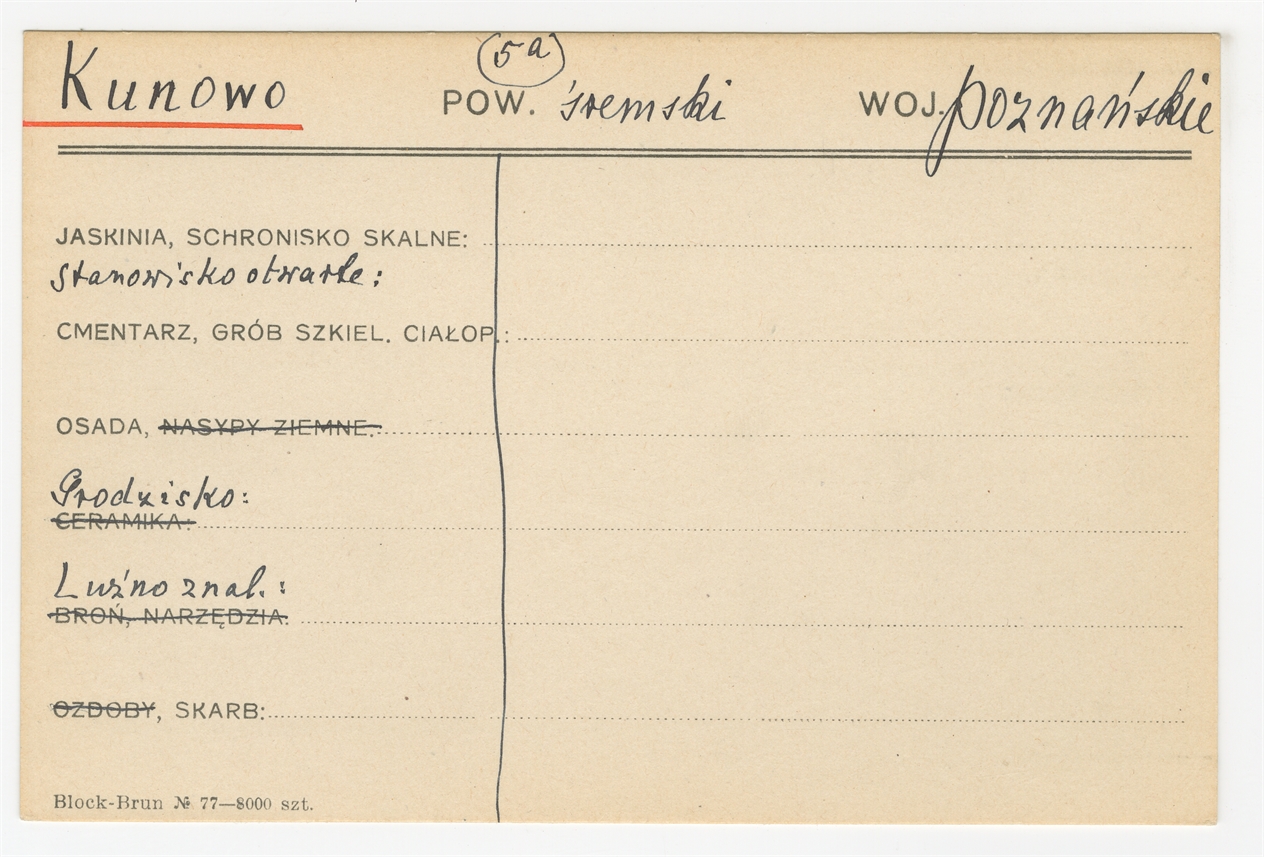 5a
Kunowo POW. śremski WOJ. poznańskie
JASKINIA, SCHRONISKO SKALNE:
Stanowisko otwarte:
CMENTARZ, GRÓB SZKIEL. CIAŁOP.:
OSADA, NASYPY ZIEMNE:
Grodzisko:
CERAMIKA:
Luźno znal.:
BROŃ, NARZĘDZIA:
OZDOBY, SKARB:
Block-Brun № 77—8000 szt.